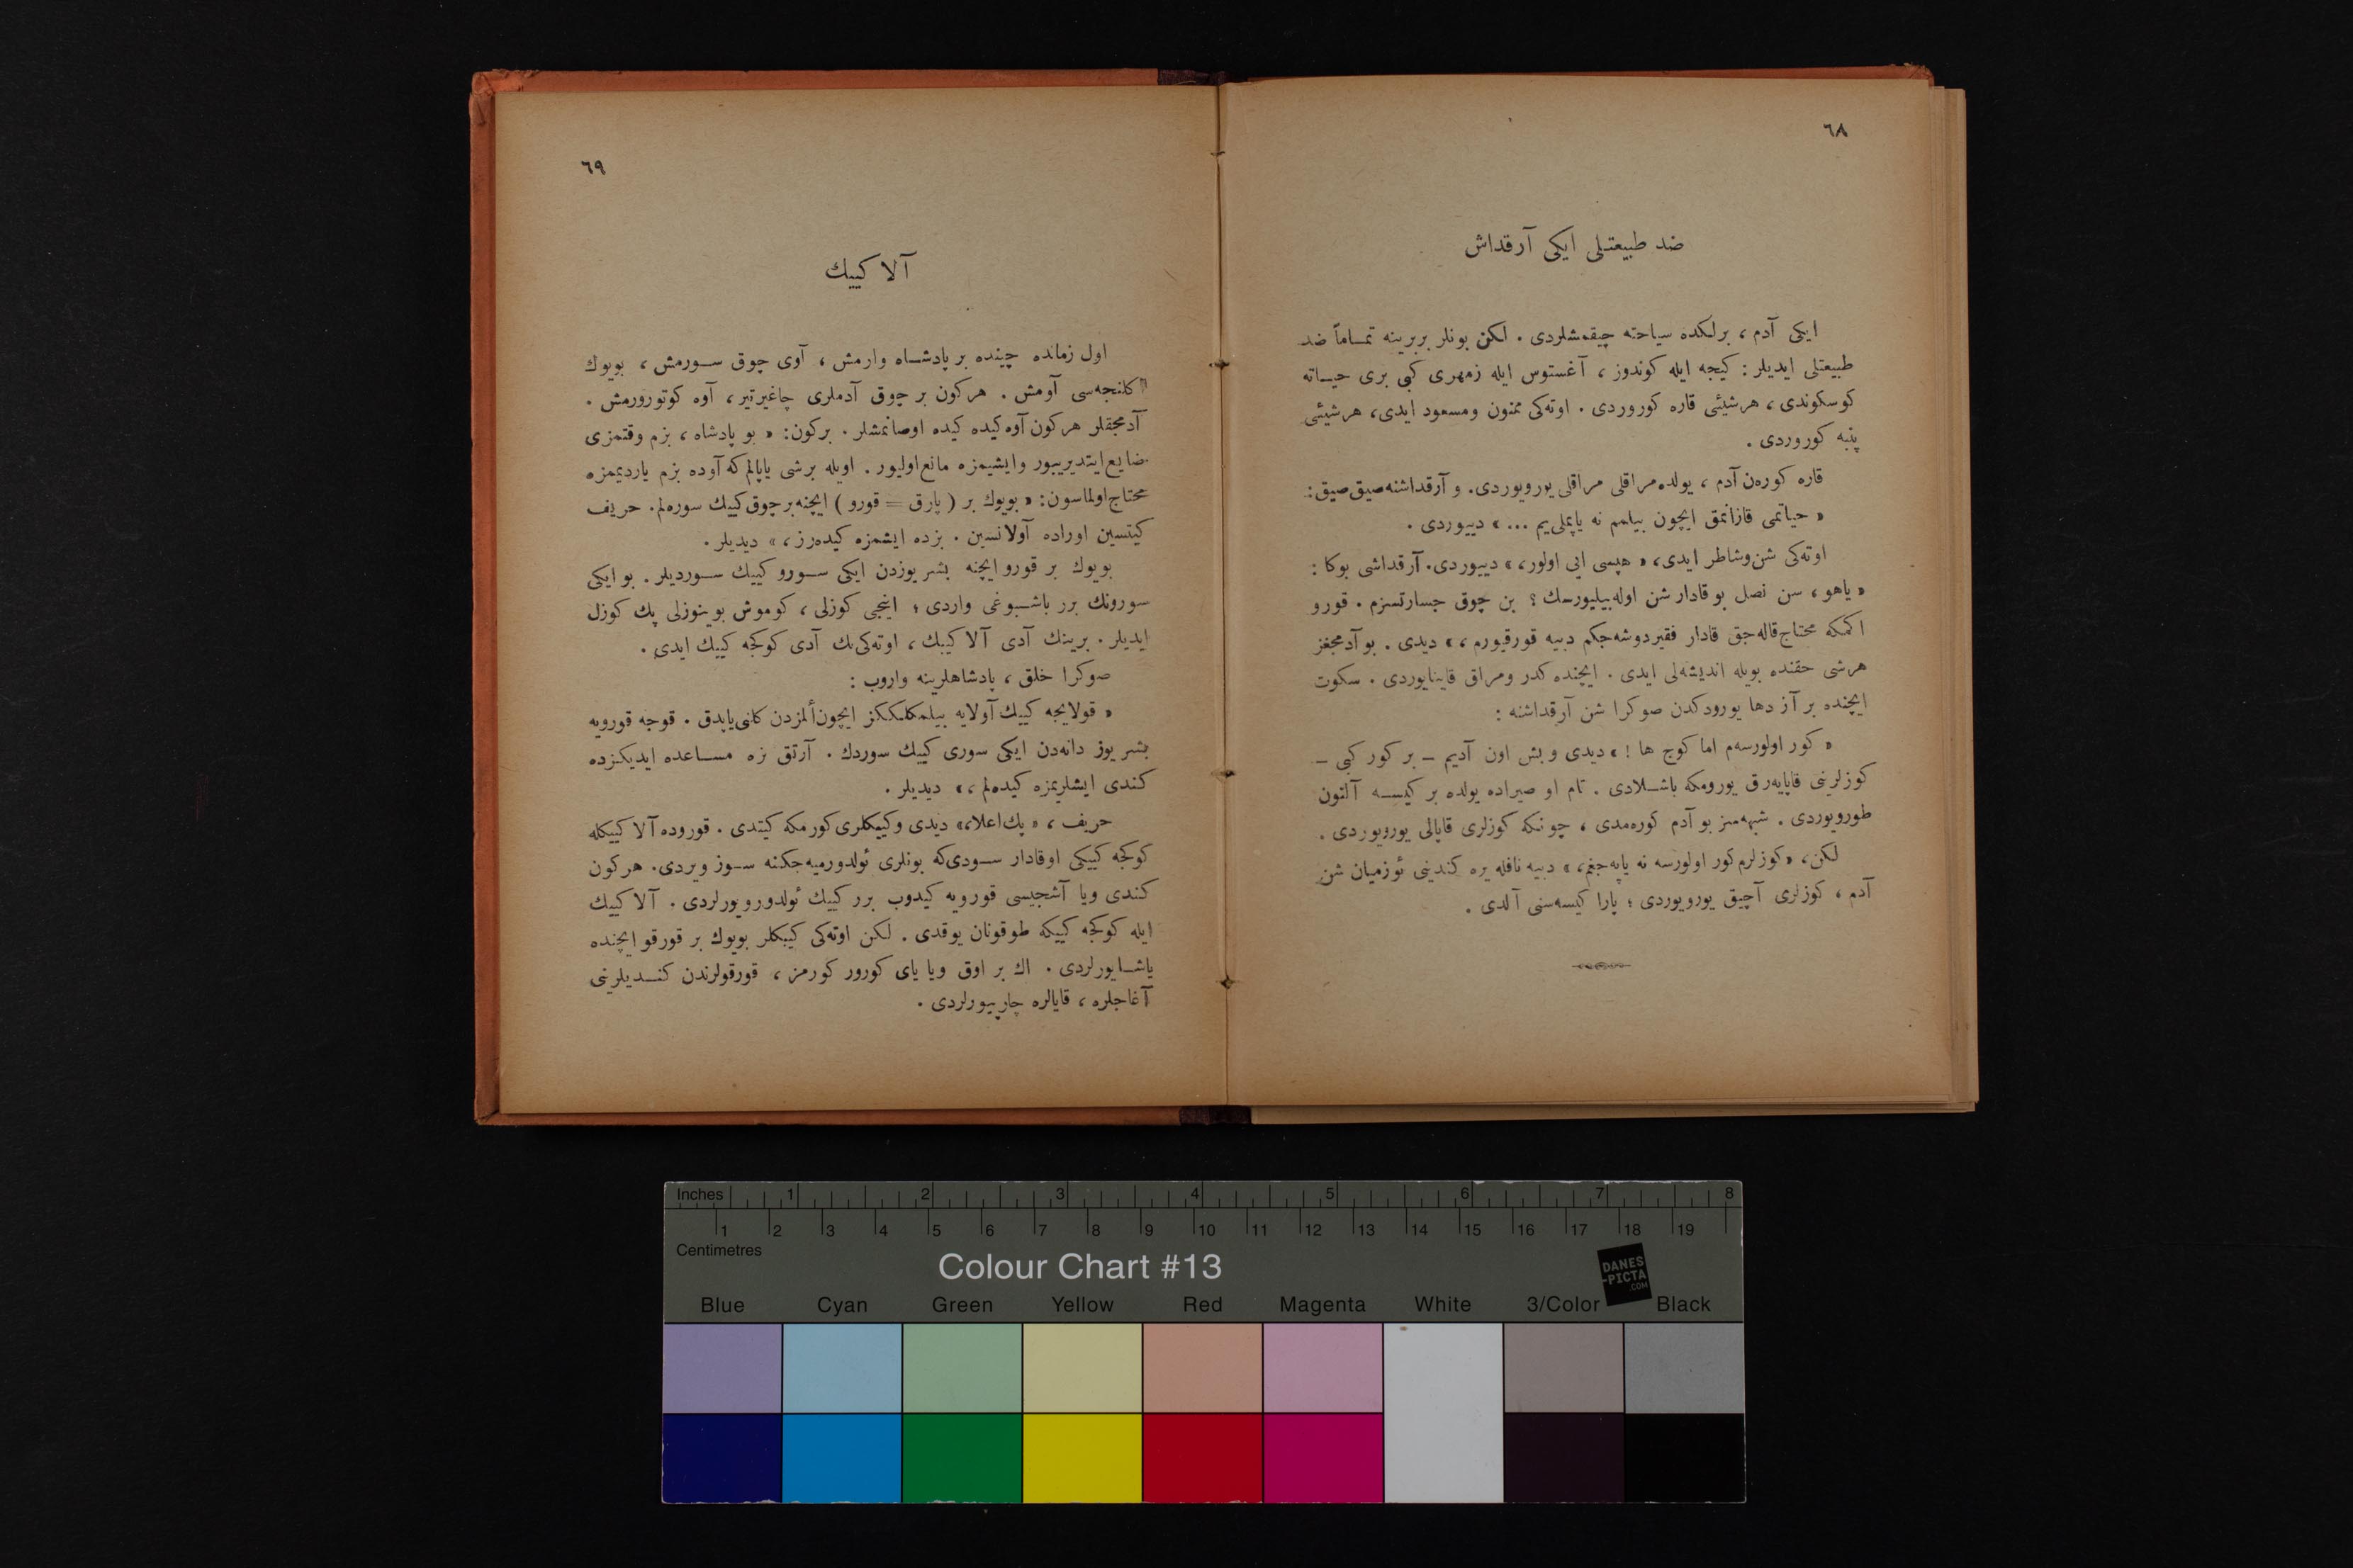 ٦٨
ضد طبيعتلی ایکی آرقداش
ایکی آدم ، برلکده سیاحته چیقمشلردی . لکن بونلر بربرینه تمـاماً ضد
طبیعتلی ایدیلر : کیجه ایله کوندوز ، آغستوس ایله زمهری کبی بری حیـاته
کوسکوندی ، هر شیئی قاره کوروردی . اوته‌کی ممنون ومسعود ایدی ، هر شیئی
پنبه کوروردی .
قاره کوره‌ن آدم ، یولده مراقلی مراقلی یورویوردی . و آرقداشنه صیق صیق :
« حیاتمی قازانمق ایچون بیلمم نه یاپملی‌یم ... » دییوردی .
اوته‌کی شن وشاطر ایدی ، « هپسی ایی اولور ، » دییوردی . آرقداشی بوکا :
« یاهو ، سن نصل بو قادار شن اوله‌بیلیورسك ؟ بن چوق جسارتسزم . قورو
اکمکه محتاج قاله‌جق قادار فقیر دوشه‌جکم دییه قورقیورم ، » دیدی . بو آدمجغز
هر شی حقنده بویله اندیشه‌لی ایدی . ایچنده کدر ومراق قاینایوردی . سکوت
ایچنده بر آز دها یورودکدن صوکرا شن آرقداشنه :
« کور اولورسه‌م اما کوج ها ! » دیدی و بش اون آدیم – بر کور کبی –
کوزلرینی قاپایه‌رق یورومکه باشـلادی . تام او صیراده یولده بر کیسـه آلتون
طورویوردی . شبهه‌سز بو آدم کوره‌مدی ، چونکه کوزلری قاپالی یورویوردی .
لکن ، « کوزلرم کور اولورسه نه یاپه‌جغم ، » دییه نافله یره کندینی ئوزمیان شن
آدم ، کوزلری آچیق یورویوردی ؛ پارا کیسه‌سنی آلدی .
٦٩
آلا کییك
اول زمانده چینده بر پادشـاه وارمش ، آوی چوق سـورمش ، بویوك
اکلنجه‌سی آومش . هر کون بر چوق آدملری چاغیرتیر ، آوه کوتورورمش .
آدمجقلر هر کون آوه کیده کیده اوصانمشلر . برکون : « بو پادشاه ، بزم وقتمزی
ضایع ایتدیرییور وایشیمزه مانع اولیور . اویله برشی یاپالم که آوده بزم یاردیممزه
محتاج اولماسون : « بویوك بر ( پارق = قورو ) ایچنه بر چوق کییك سوره‌لم . حریف
کیتسین اوراده آولانسین . بزده ایشمزه کیده‌رز ، » دیدیلر .
بویوك بر قورو ایچنه بشر یوزدن ایکی سـورو کییك سـوردیلر . بو ایکی
سورونك برر باشـبوغی واردی ؛ اینجی کوزلی ، کوموش بوینوزلی پك کوزل
ایدیلر . برینك آدی آلا کییك ، اوته‌کی‌نك آدی کوکجه کییك ایدی .
صوکرا خلق ، پادشاهلرینه واروب :
« قولایجه کییك آولایه بیلمکلککز ایچون ألمزدن کلنی یاپدق . قوجه قورویه
بشر یوز دانه‌دن ایکی سوری کییك سوردك . آرتق بزه مسـاعده ایدیکزده
کندی ایشلریمزه کیده‌لم ، » دیدیلر .
حریف ، « پك اعلا ، » دیدی وکییکلری کورمکه کیتدی . قوروده آلا کییکله
کوکجه کییکی اوقادار سـودی‌که بونلری ئولدورمیه‌جکنه سـوز ویردی . هر کون
کندی ویا آشجیسی قورویه کیدوب برر کییك ئولدورویورلردی . آلا کییك
ایله کوکجه کییکه طوقونان یوقدی . لکن اوته‌کی کییکلر بویوك بر قورقو ایچنده
یاشـایورلردی . اك بر اوق ویا یای کورور کورمز ، قورقولرندن کنـدیلرینی
آغاجلره ، قایالره چارپیورلردی .
Inches 1 2 3 4 5 6 7 8
1 2 3 4 5 6 7 8 9 10 11 12 13 14 15 16 17 18 19
Centimetres
Colour Chart #13
DANES
-PICTA
.COM
Blue Cyan Green Yellow Red Magenta White 3/Color Black